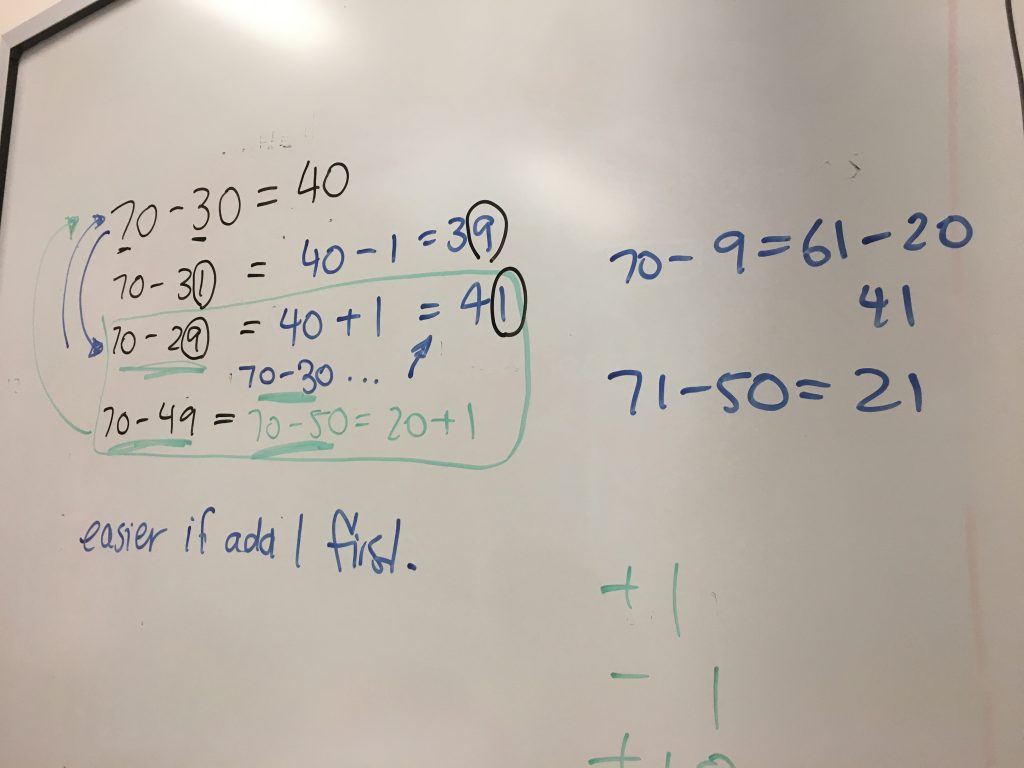 70 - 30 = 40
70 - 31 = 40 - 1 = 39
70 - 29 = 40 + 1 = 41
70 - 30 ...
70 - 49 = 70 - 50 = 20 + 1
easier if add 1 first.
70 - 9 = 61 - 20
41
71 - 50 = 21
+ 1
- 1